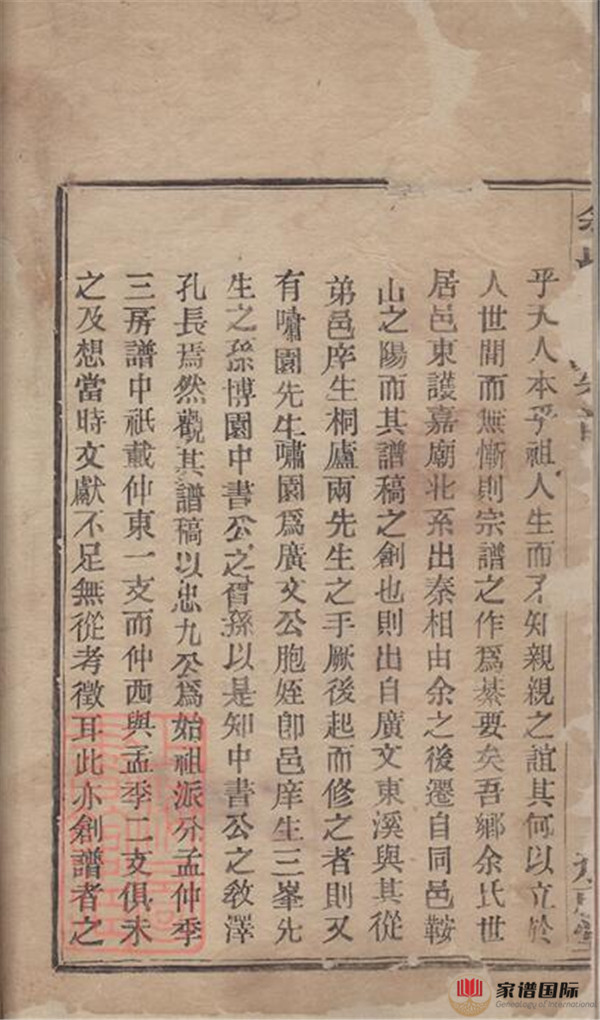 乎天人本乎祖人生而不知親親之誼其何以立於
人世間而無慚則宗譜之作爲綦要矣吾鄉余氏世
居邑東護嘉廟北系出秦相由余之後遷自同邑鞍
山之陽而其譜稿之創也則出自廣文東溪與其從
弟邑庠生桐廬兩先生之手厥後起而修之者則又
有嘯園先生嘯園爲廣文公胞姪卽邑庠生三峯先
生之孫博園中書公之胥孫以是知中書公之敎澤
孔長焉然觀其譜稿以忠九公爲始祖派分孟仲季
三房譜中祇載仲東一支而仲西與孟季二支俱未
之及想當時文獻不足無從考徵耳此亦創譜者之
家谱国际
Genealogy of International